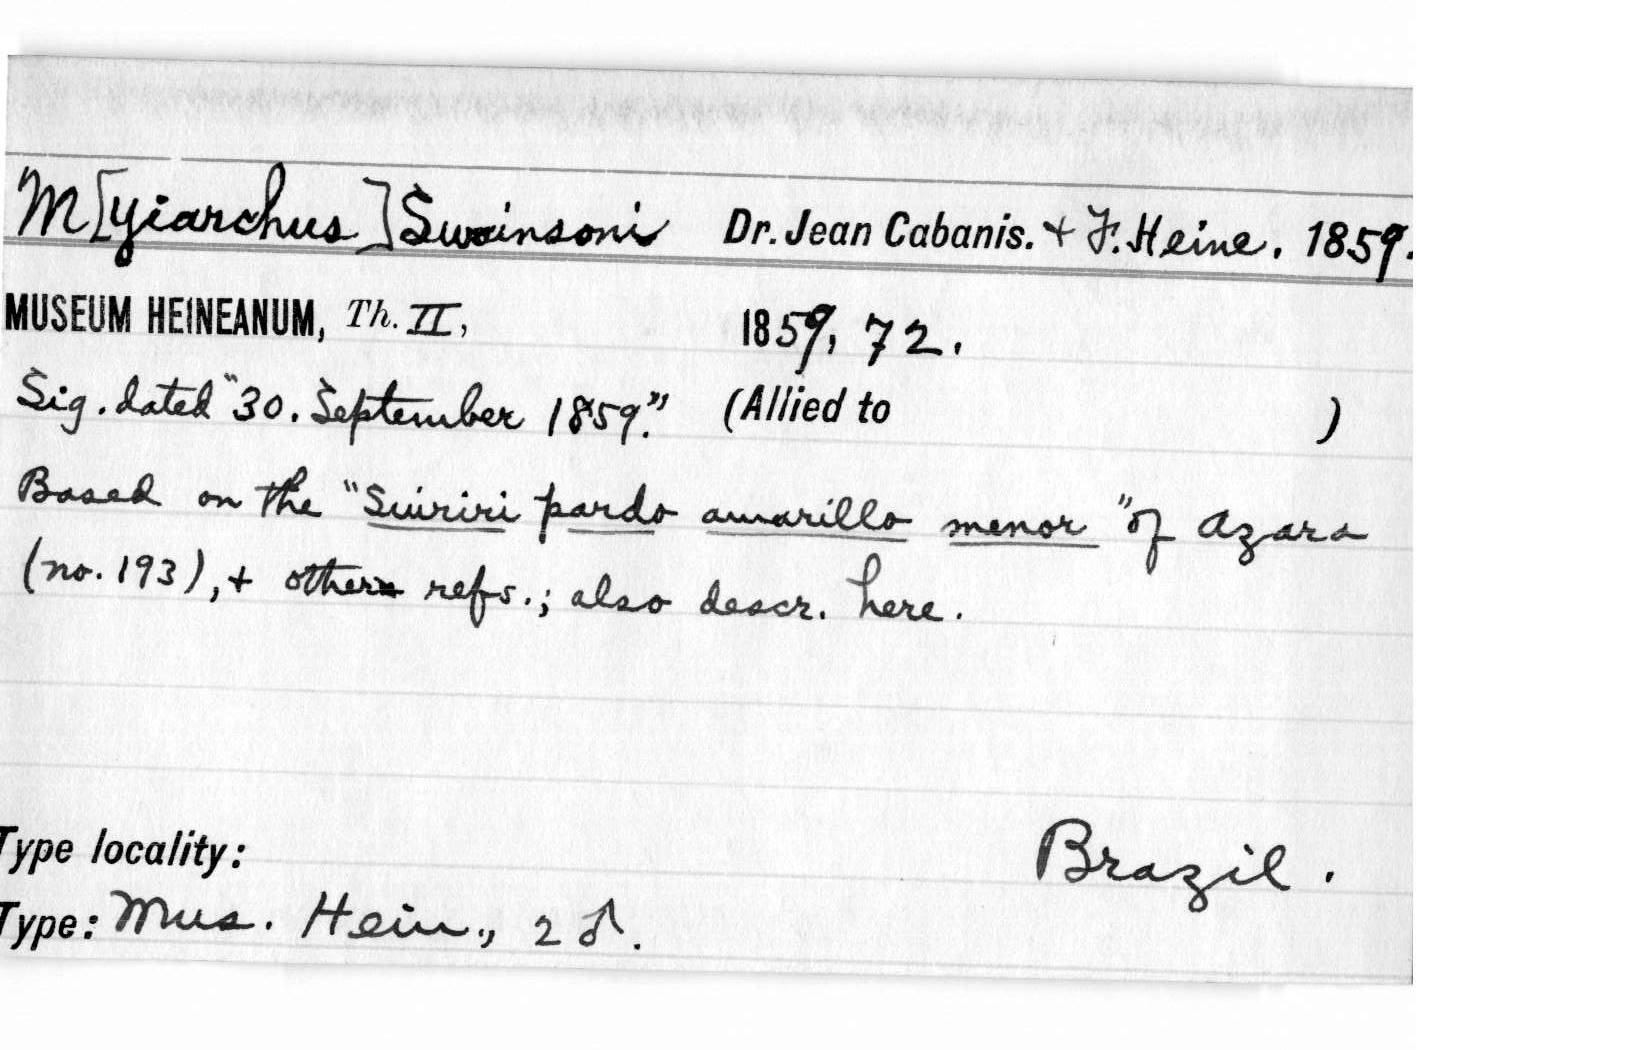 M[yiarchus] Swainsoni Dr. Jean Cabanis. + F. Heine. 1859.
MUSEUM HEINEANUM, Th. II, 1859, 72.
Sig. dated "30. September 1859." (Allied to )
Based on the "Suiriri pardo amarillo menor" of Azara
(no. 193), + other refs.; also descr. here.
Type locality: Brazil.
Type: Mus. Hein., 2 ♂.